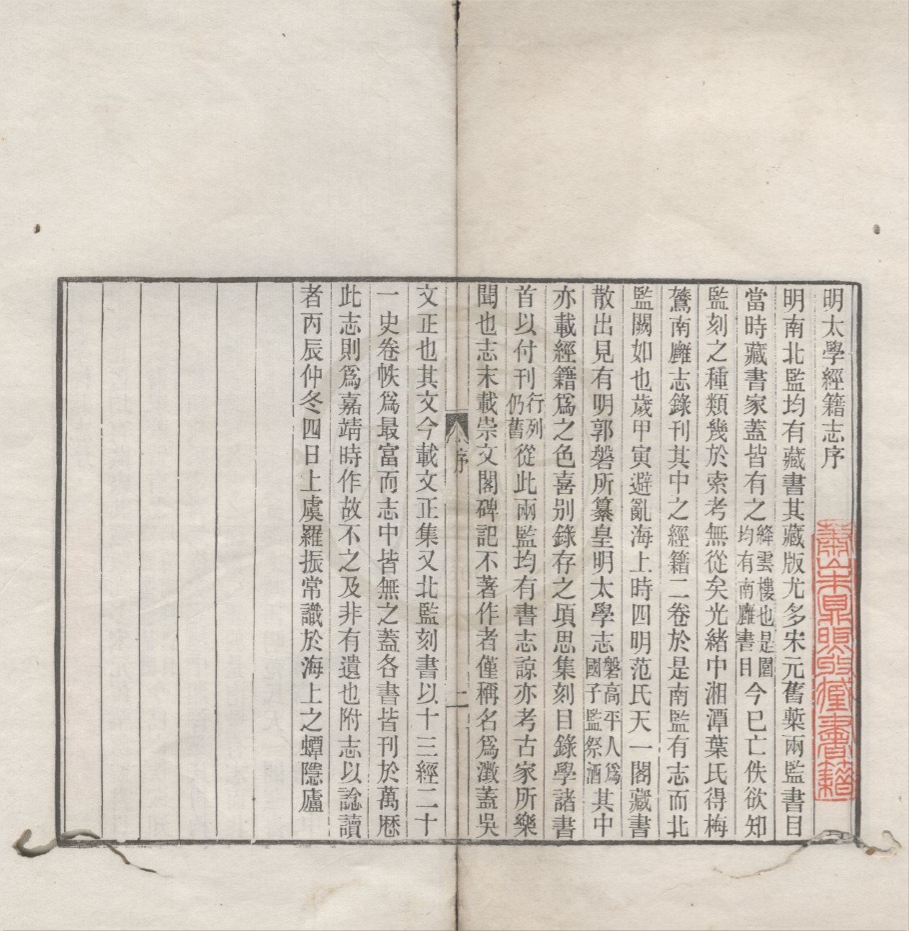 蕭山朱鼎煦收藏書籍
明太學經籍志序
明南北監均有藏書其藏版尤多宋元舊槧兩監書目
當時藏書家蓋皆有之絳雲樓也是園均有南廱書目今已亡佚欲知
監刻之種類幾於索考無從矣光緒中湘潭葉氏得梅
鷟南廱志錄刊其中之經籍二卷於是南監有志而北
監闕如也歲甲寅避亂海上時四明范氏天一閣藏書
散出見有明郭磐所纂皇明太學志磐高平人爲國子監祭酒其中
亦載經籍爲之色喜别錄存之頃思集刻目錄學諸書
首以付刊行列仍舊從此兩監均有書志諒亦考古家所樂
聞也志末載崇文閣碑記不著作者僅稱名爲澂蓋吳
序 二
文正也其文今載文正集又北監刻書以十三經二十
一史卷帙爲最富而志中皆無之蓋各書皆刊於萬厯
此志則爲嘉靖時作故不之及非有遺也附志以諗讀
者丙辰仲冬四日上虞羅振常識於海上之蟫隱廬